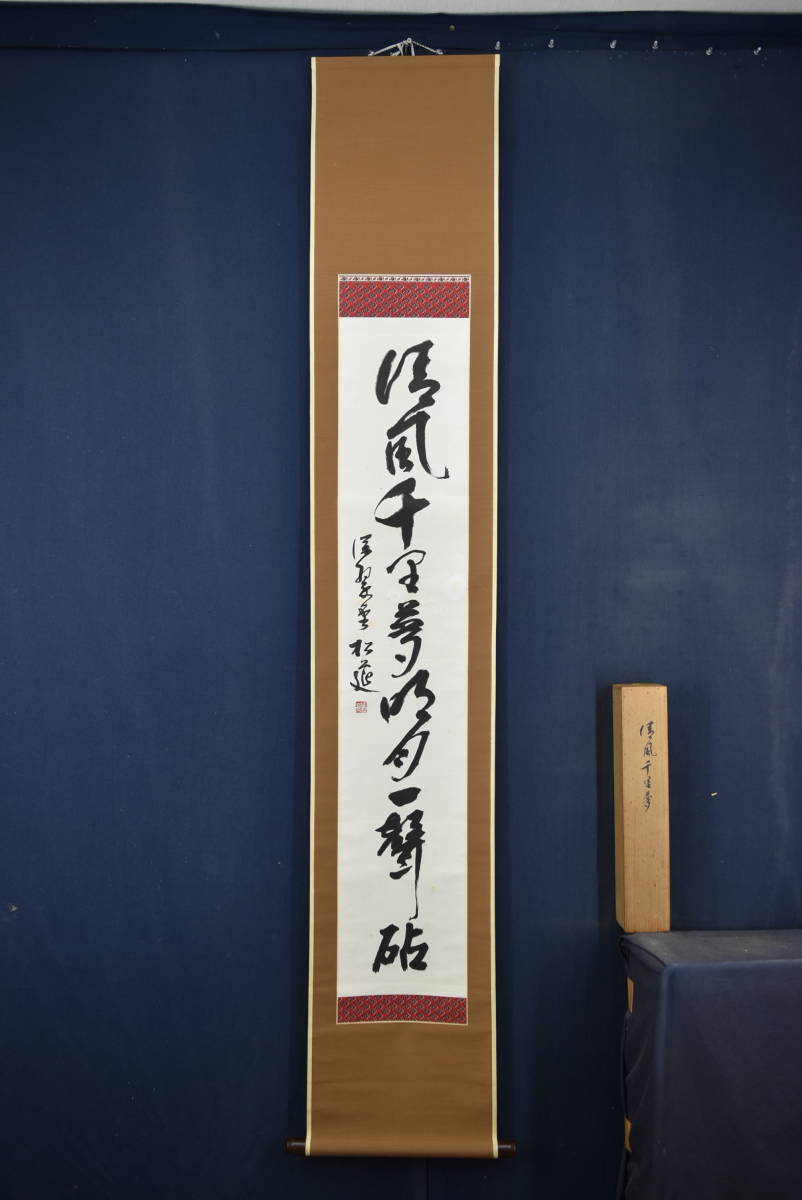 清風千里夢明月一聲砧
翠堂松延
清風千里夢